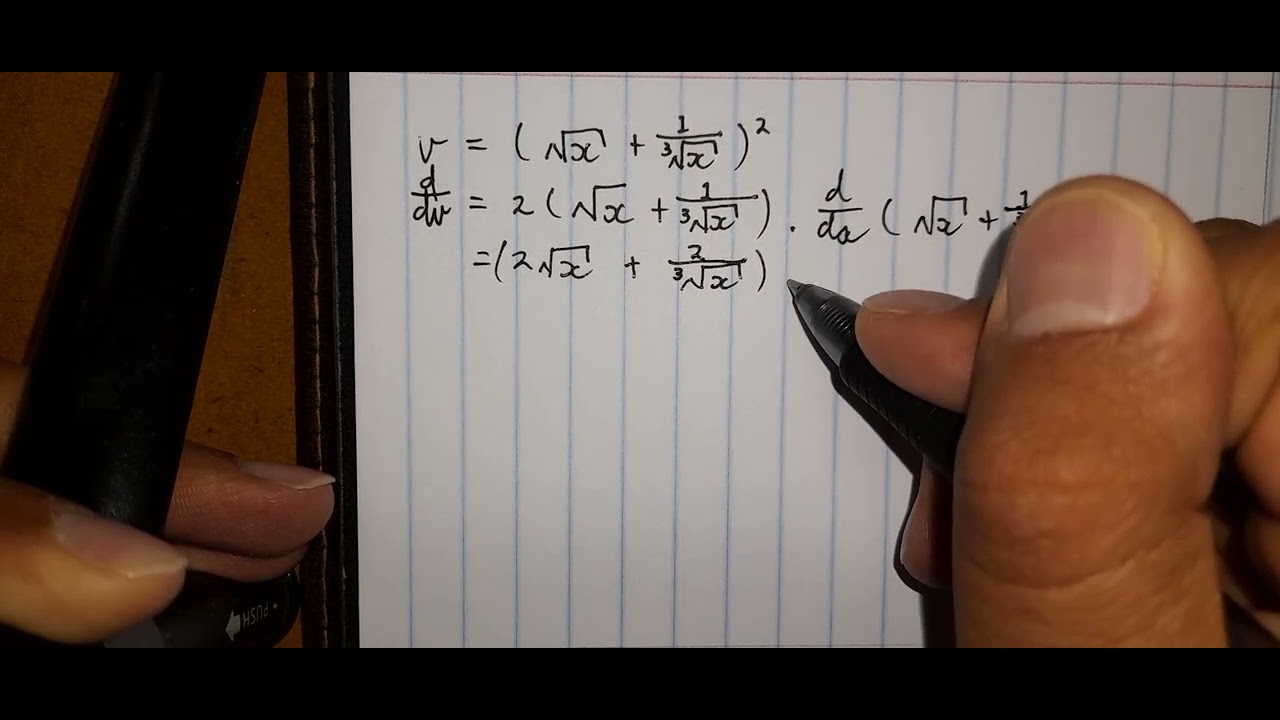 v = (√x + 1/∛x)²
d/dv = 2(√x + 1/∛x) . d/dx (√x +
=(2√x + 2/∛x)
PUSH